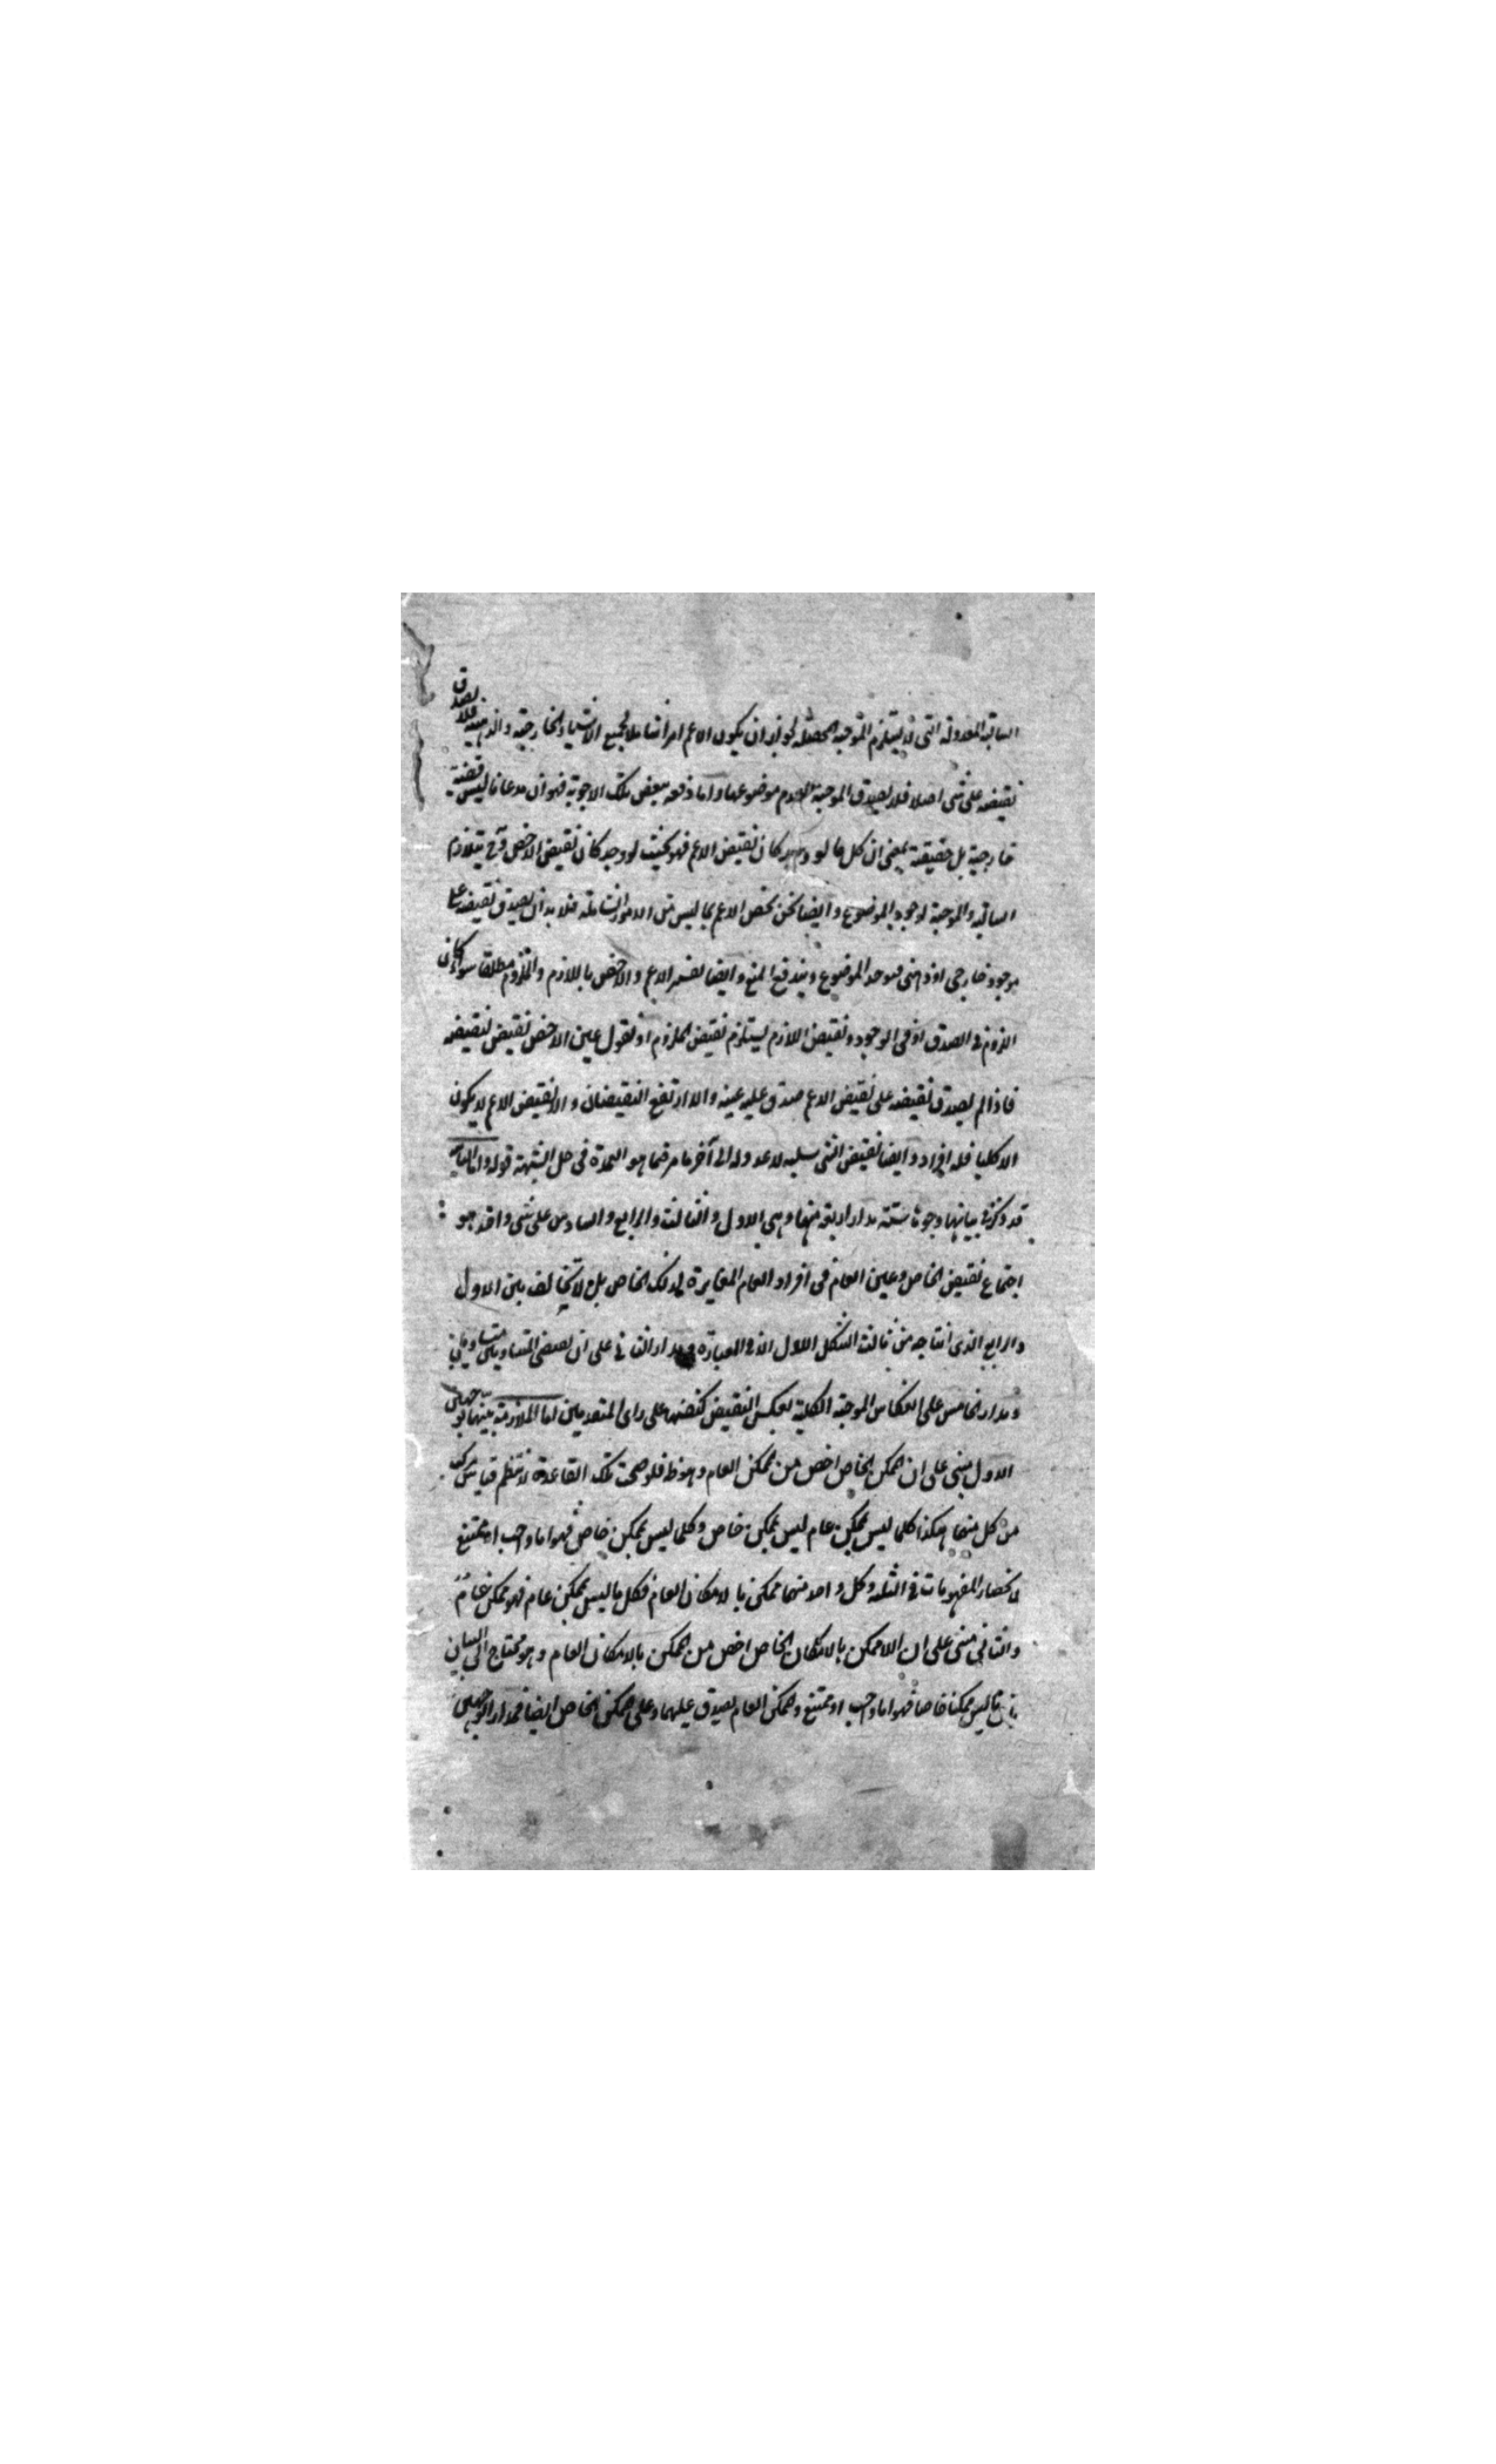 السالبة المعدولة التى لا يستلزم الموجبة المحصلة لجواز ان يكون الاعم امرا شاملا لجميع الاشياء الخارجية والذهنية فلا يصدق
نقيضه على شى اصلا فلا يصدق الموجبة لعدم موضوعها واما دفعه ببعض تلك الاجوبة فهو ان مدعانا ليس قضية
خارجية بل حقيقية بمعنى ان كل ما لو وجد كان نقيض الاعم فهو بحيث لو وجد كان نقيض الاخص وح يتلازم
السالبة والموجبة لوجود الموضوع وايضا نحن نخص الاعم بما ليس من الامور الشاملة فلا بد ان يصدق نقيضه على
موجود خارجى او ذهنى فيوجد الموضوع ويندفع المنع وايضا نفسر الاعم والاخص باللازم والملزوم مطلقا سواء كان
اللزوم فى الصدق او فى الوجود ونقيض اللازم يستلزم نقيض الملزوم او نقول عين الاخص نقيض لنقيضه
فاذا لم يصدق نقيضه على نقيض الاعم صدق عليه عينه والا ارتفع النقيضان والا نقيض الاعم لا يكون
الا كليا فله افراد وايضا نقيض الشى سلبه لا عدوله الى آخر ما مر فما هو العمدة فى حل الشبهة قوله واما
قد ذكر فى بيانها وجوها ستة مدار اربعة منها وهى الاول والثالث والرابع والسادس على شى واحد هو
اجتماع نقيض الخاص وعين العام فى افراد العام المغايرة لذلك الخاص بل لا تخالف بين الاول
والرابع الذى انتاجه من ثالث الشكل الاول الا فى العبارة ومدار الثانى على ان نقيضى المتساويين متساويان
ومدار الخامس على انعكاس الموجبة الكلية بعكس النقيض كنفسها على راى المتقدمين اما الملازمة بينهما بوجهين
الاول مبنى على ان الممكن الخاص اخص من الممكن العام وهو ظ فلو صحت تلك القاعدة لانتظم قياس مركب
من كل منهما هكذا كلما ليس بممكن عام ليس بممكن خاص وكلما ليس بممكن خاص فهو اما واجب او ممتنع
لانحصار المفهومات فى الثلثة وكل واحد منهما ممكن بالامكان العام فكل ما ليس بممكن عام فهو ممكن عام
والثانى مبنى على ان اللاممكن بالامكان الخاص اخص من الممكن بالامكان العام وهو محتاج الى البيان
بان ما ليس ممكنا خاصا فهو اما واجب او ممتنع والممكن العام يصدق عليهما وعلى الممكن الخاص ايضا فمدار الوجهين